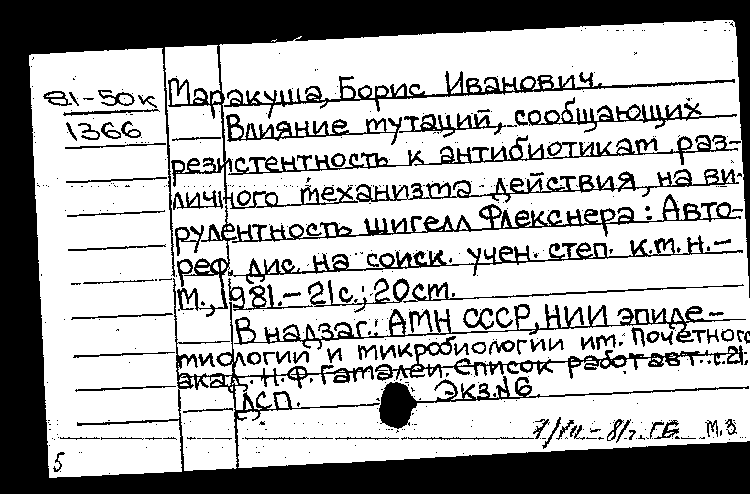 81-50к
1366
Маракуша, Борис Иванович.
Влияние мутаций, сообщающих
резистентность к антибиотикам раз-
личного механизма действия, на ви-
рулентность шигелл Флекснера: Авто-
реф. дис. на соиск. учен. степ. к.м.н.-
М., 1981.-21с.; 20см.
В надзаг.: АМН СССР, НИИ эпиде-
миологии и микробиологии им. Почётного
акад. Н.Ф. Гамалеи. Список работ авт.: с.21.
ДСП. Экз.№6
81г. ГБ. М.З
5